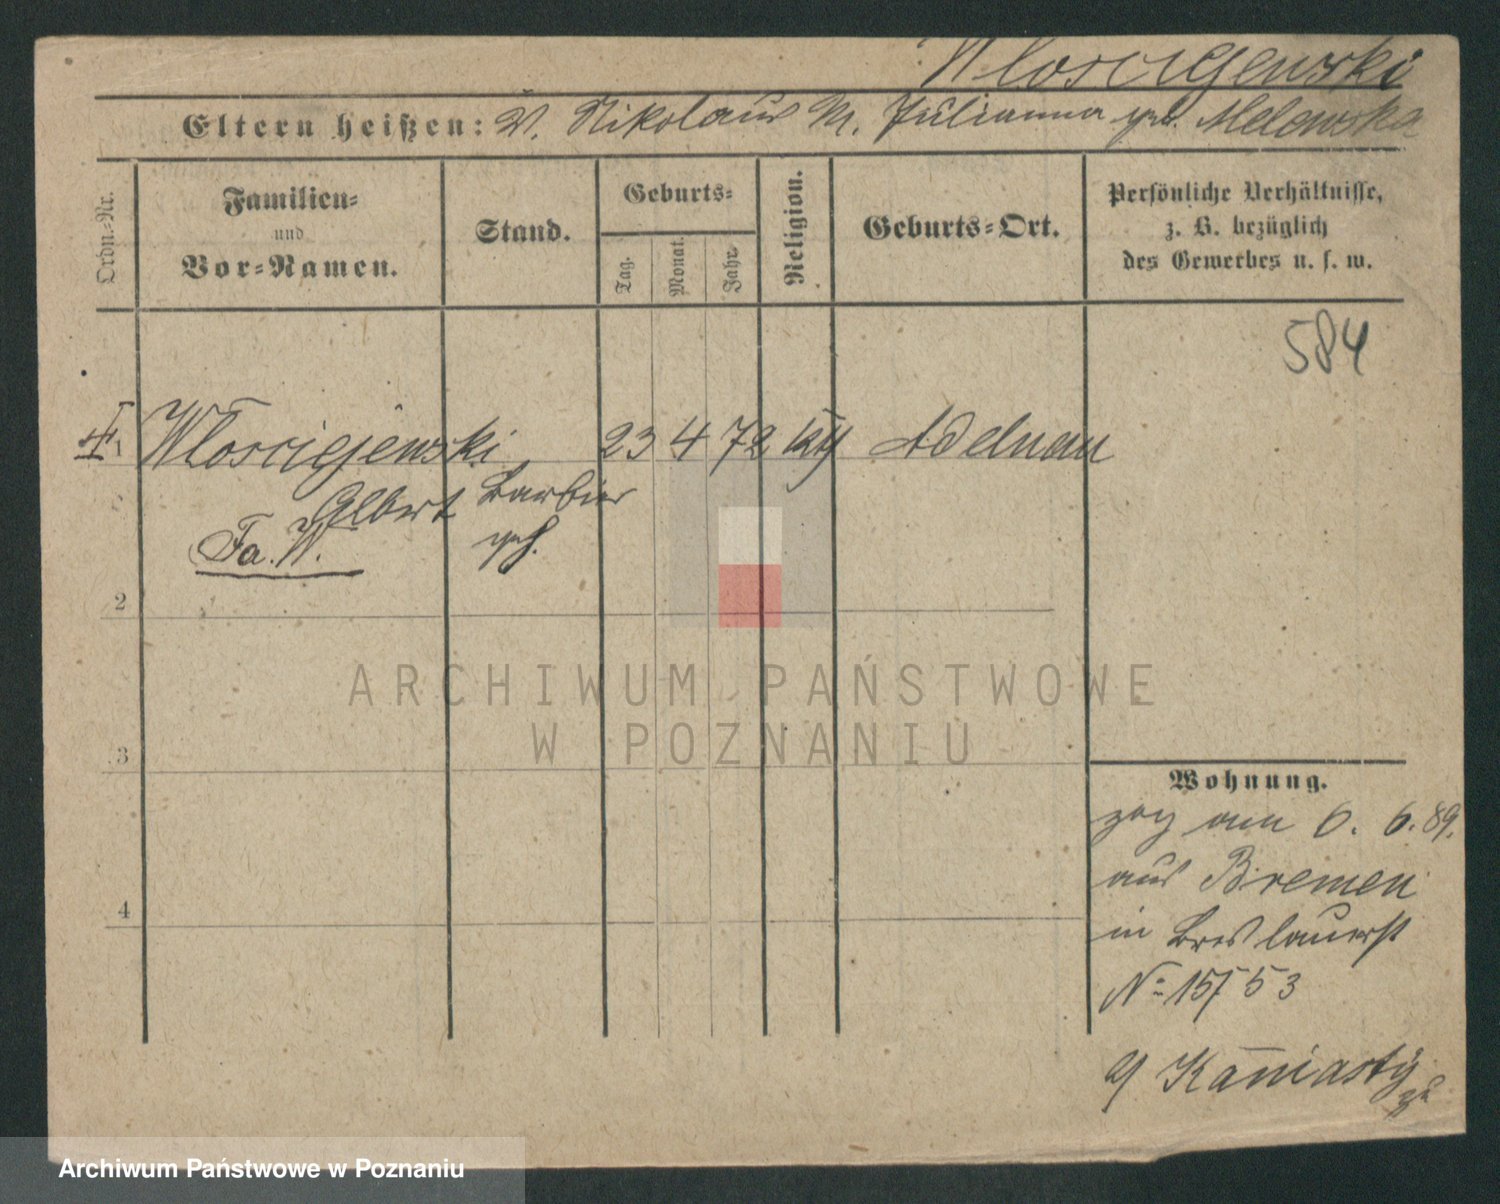 Wloscigewski
Eltern heißen: V. Nikolaus M. Julianna geb. Melewska
Ordn.-Nr.
Familien-
und
Vor-Namen.
Stand.
Geburts-
Tag.
Monat.
Jahr.
Religion.
Geburts-Ort.
Persönliche Verhältnisse,
z. B. bezüglich
des Gewerbes u. s. w.
584
Wloscigewski 23 4 72 kth Adelnau
Albert Barbier
Fa. W. geh.
2
3
4
Wohnung.
zog am 6. 6. 89.
aus Bremen
in Breslauerst
No 15753
Kaniasty
ARCHIWUM PAŃSTWOWE
W POZNANIU
Archiwum Państwowe w Poznaniu